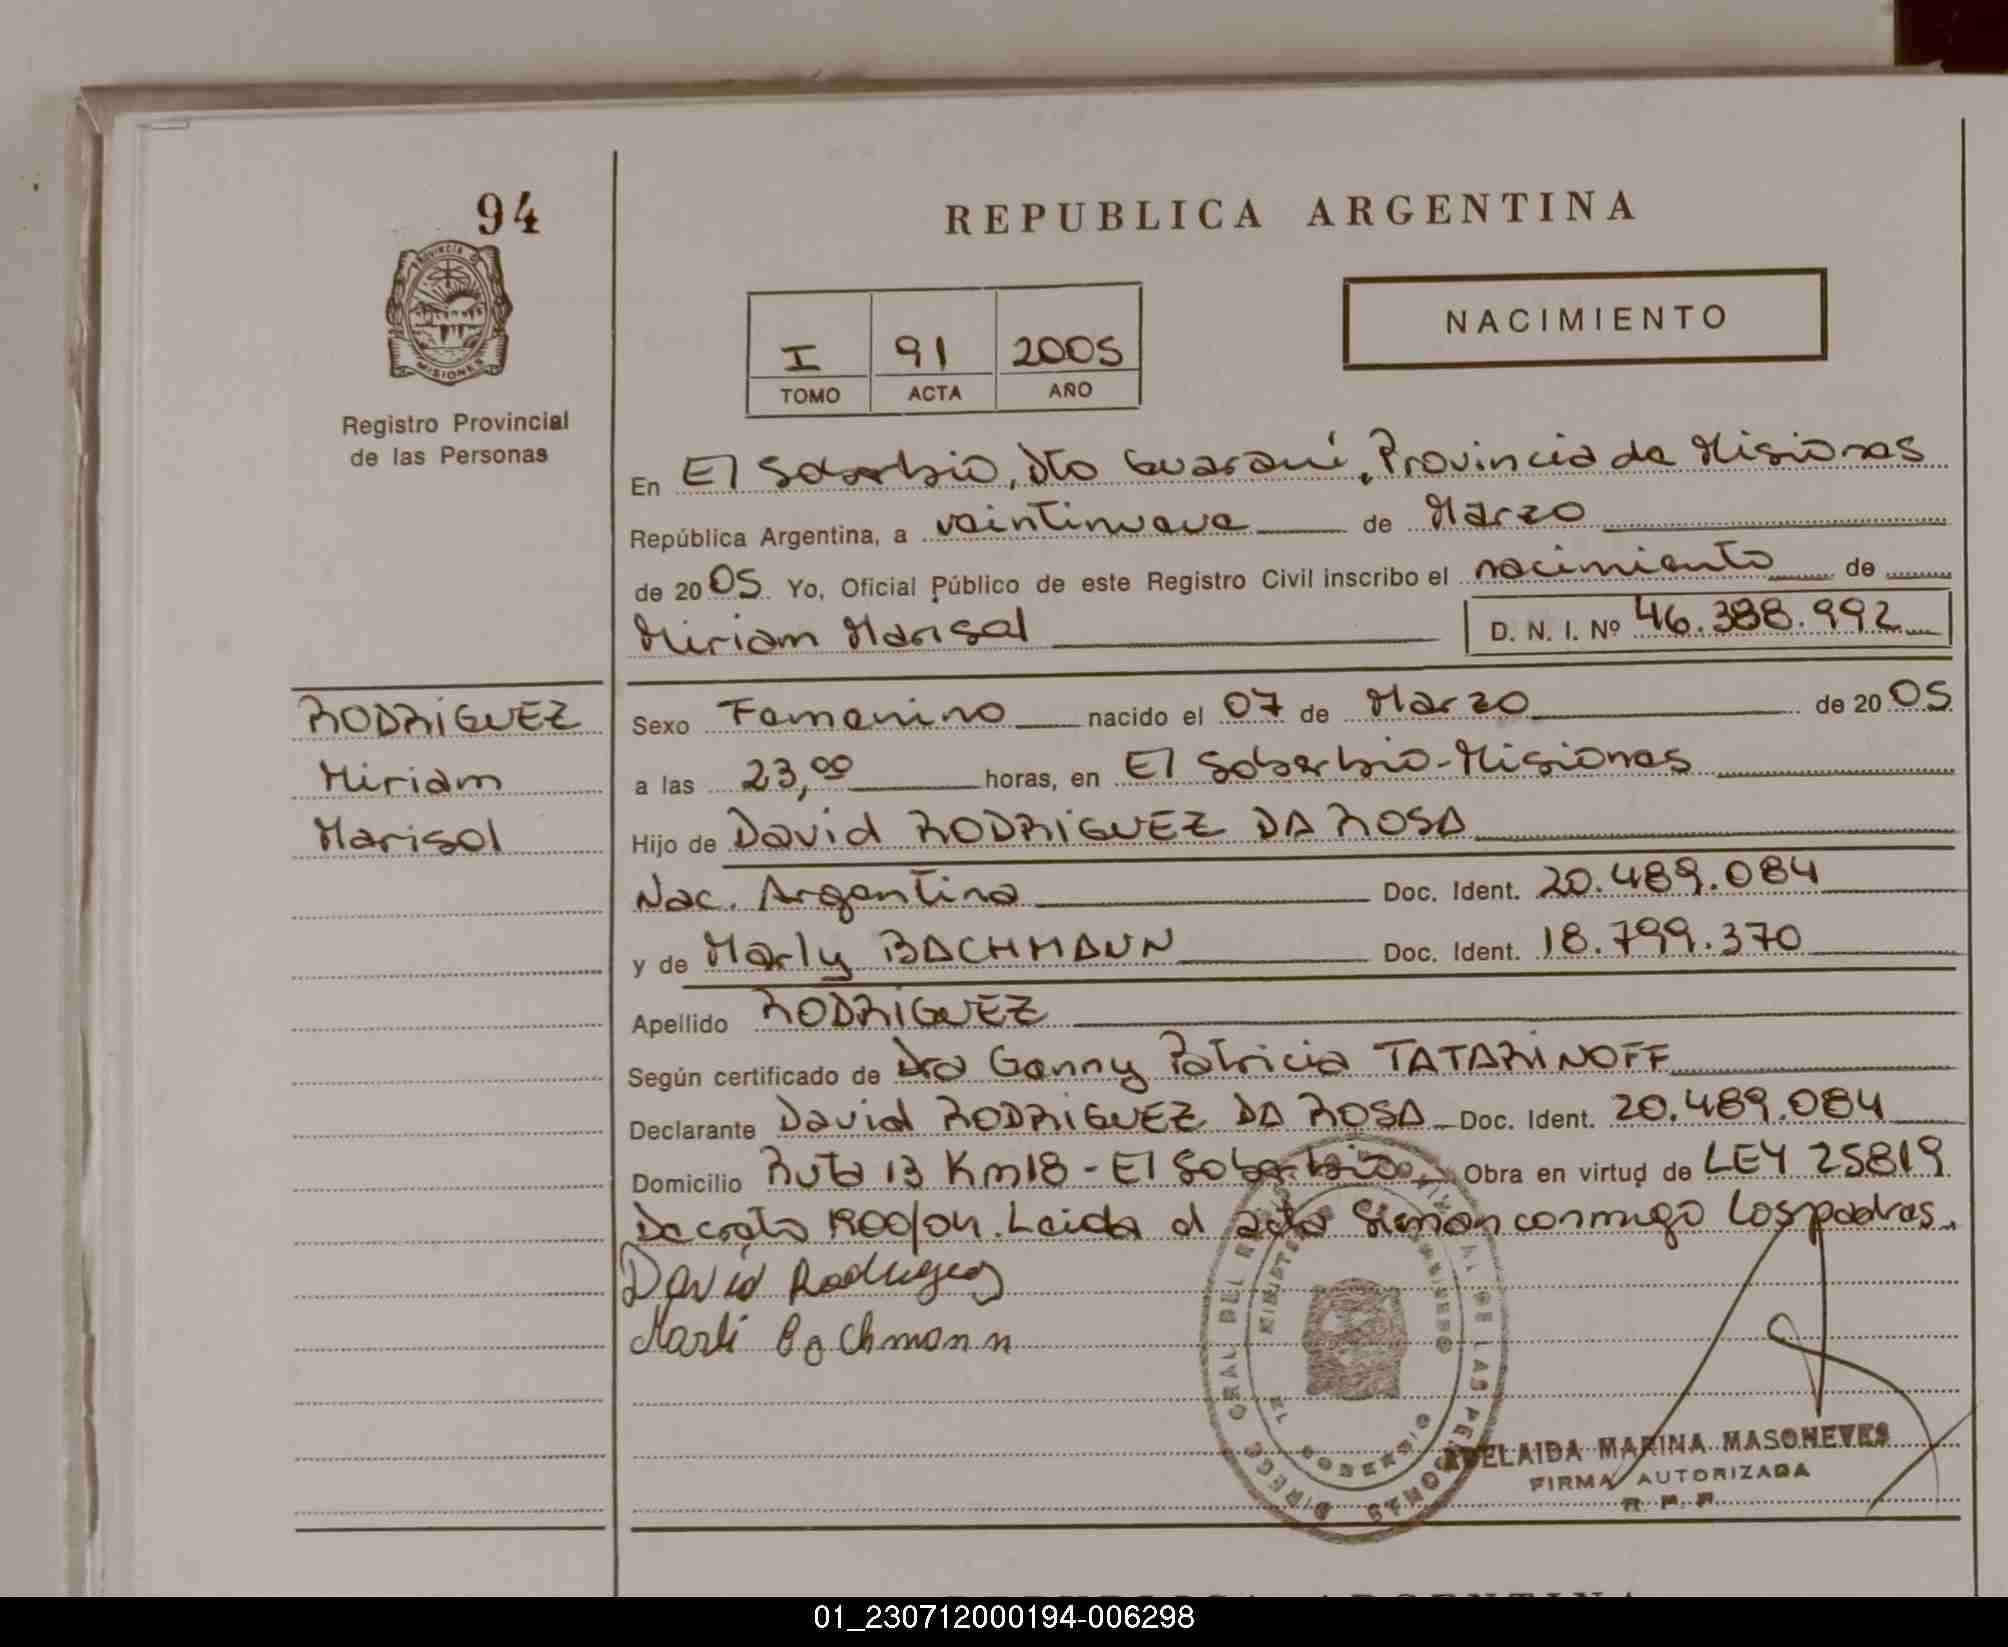 94
REPUBLICA ARGENTINA
PROVINCIA DE
MISIONES
Registro Provincial
de las Personas
I 91 2005
TOMO ACTA AÑO
NACIMIENTO
En El Soberbio, Dto Guaraní, Provincia de Misiones
República Argentina, a veintinueve de Marzo
de 2005. Yo, Oficial Público de este Registro Civil inscribo el nacimiento de
Miriam Marisol D. N. I. Nº 46.388.992
RODRIGUEZ
Miriam
Marisol
Sexo Femenino nacido el 07 de Marzo de 2005
a las 23,00 horas, en El Soberbio-Misiones
Hijo de David RODRIGUEZ DA ROSA
Nac. Argentina Doc. Ident. 20.489.084
y de Marly BACHMANN Doc. Ident. 18.799.370
Apellido RODRIGUEZ
Según certificado de Dra Genny Patricia TATARINOFF
Declarante David RODRIGUEZ DA ROSA Doc. Ident. 20.489.084
Domicilio Ruta 13 Km18 - El Soberbio Obra en virtud de LEY 25819
Decreto 1900/04. Leida el acta firman conmigo los padres.
David Rodriguez
Marli Bachmann
ADELAIDA MARINA MASONEVES
FIRMA AUTORIZADA
R. P. P.
01_230712000194-006298